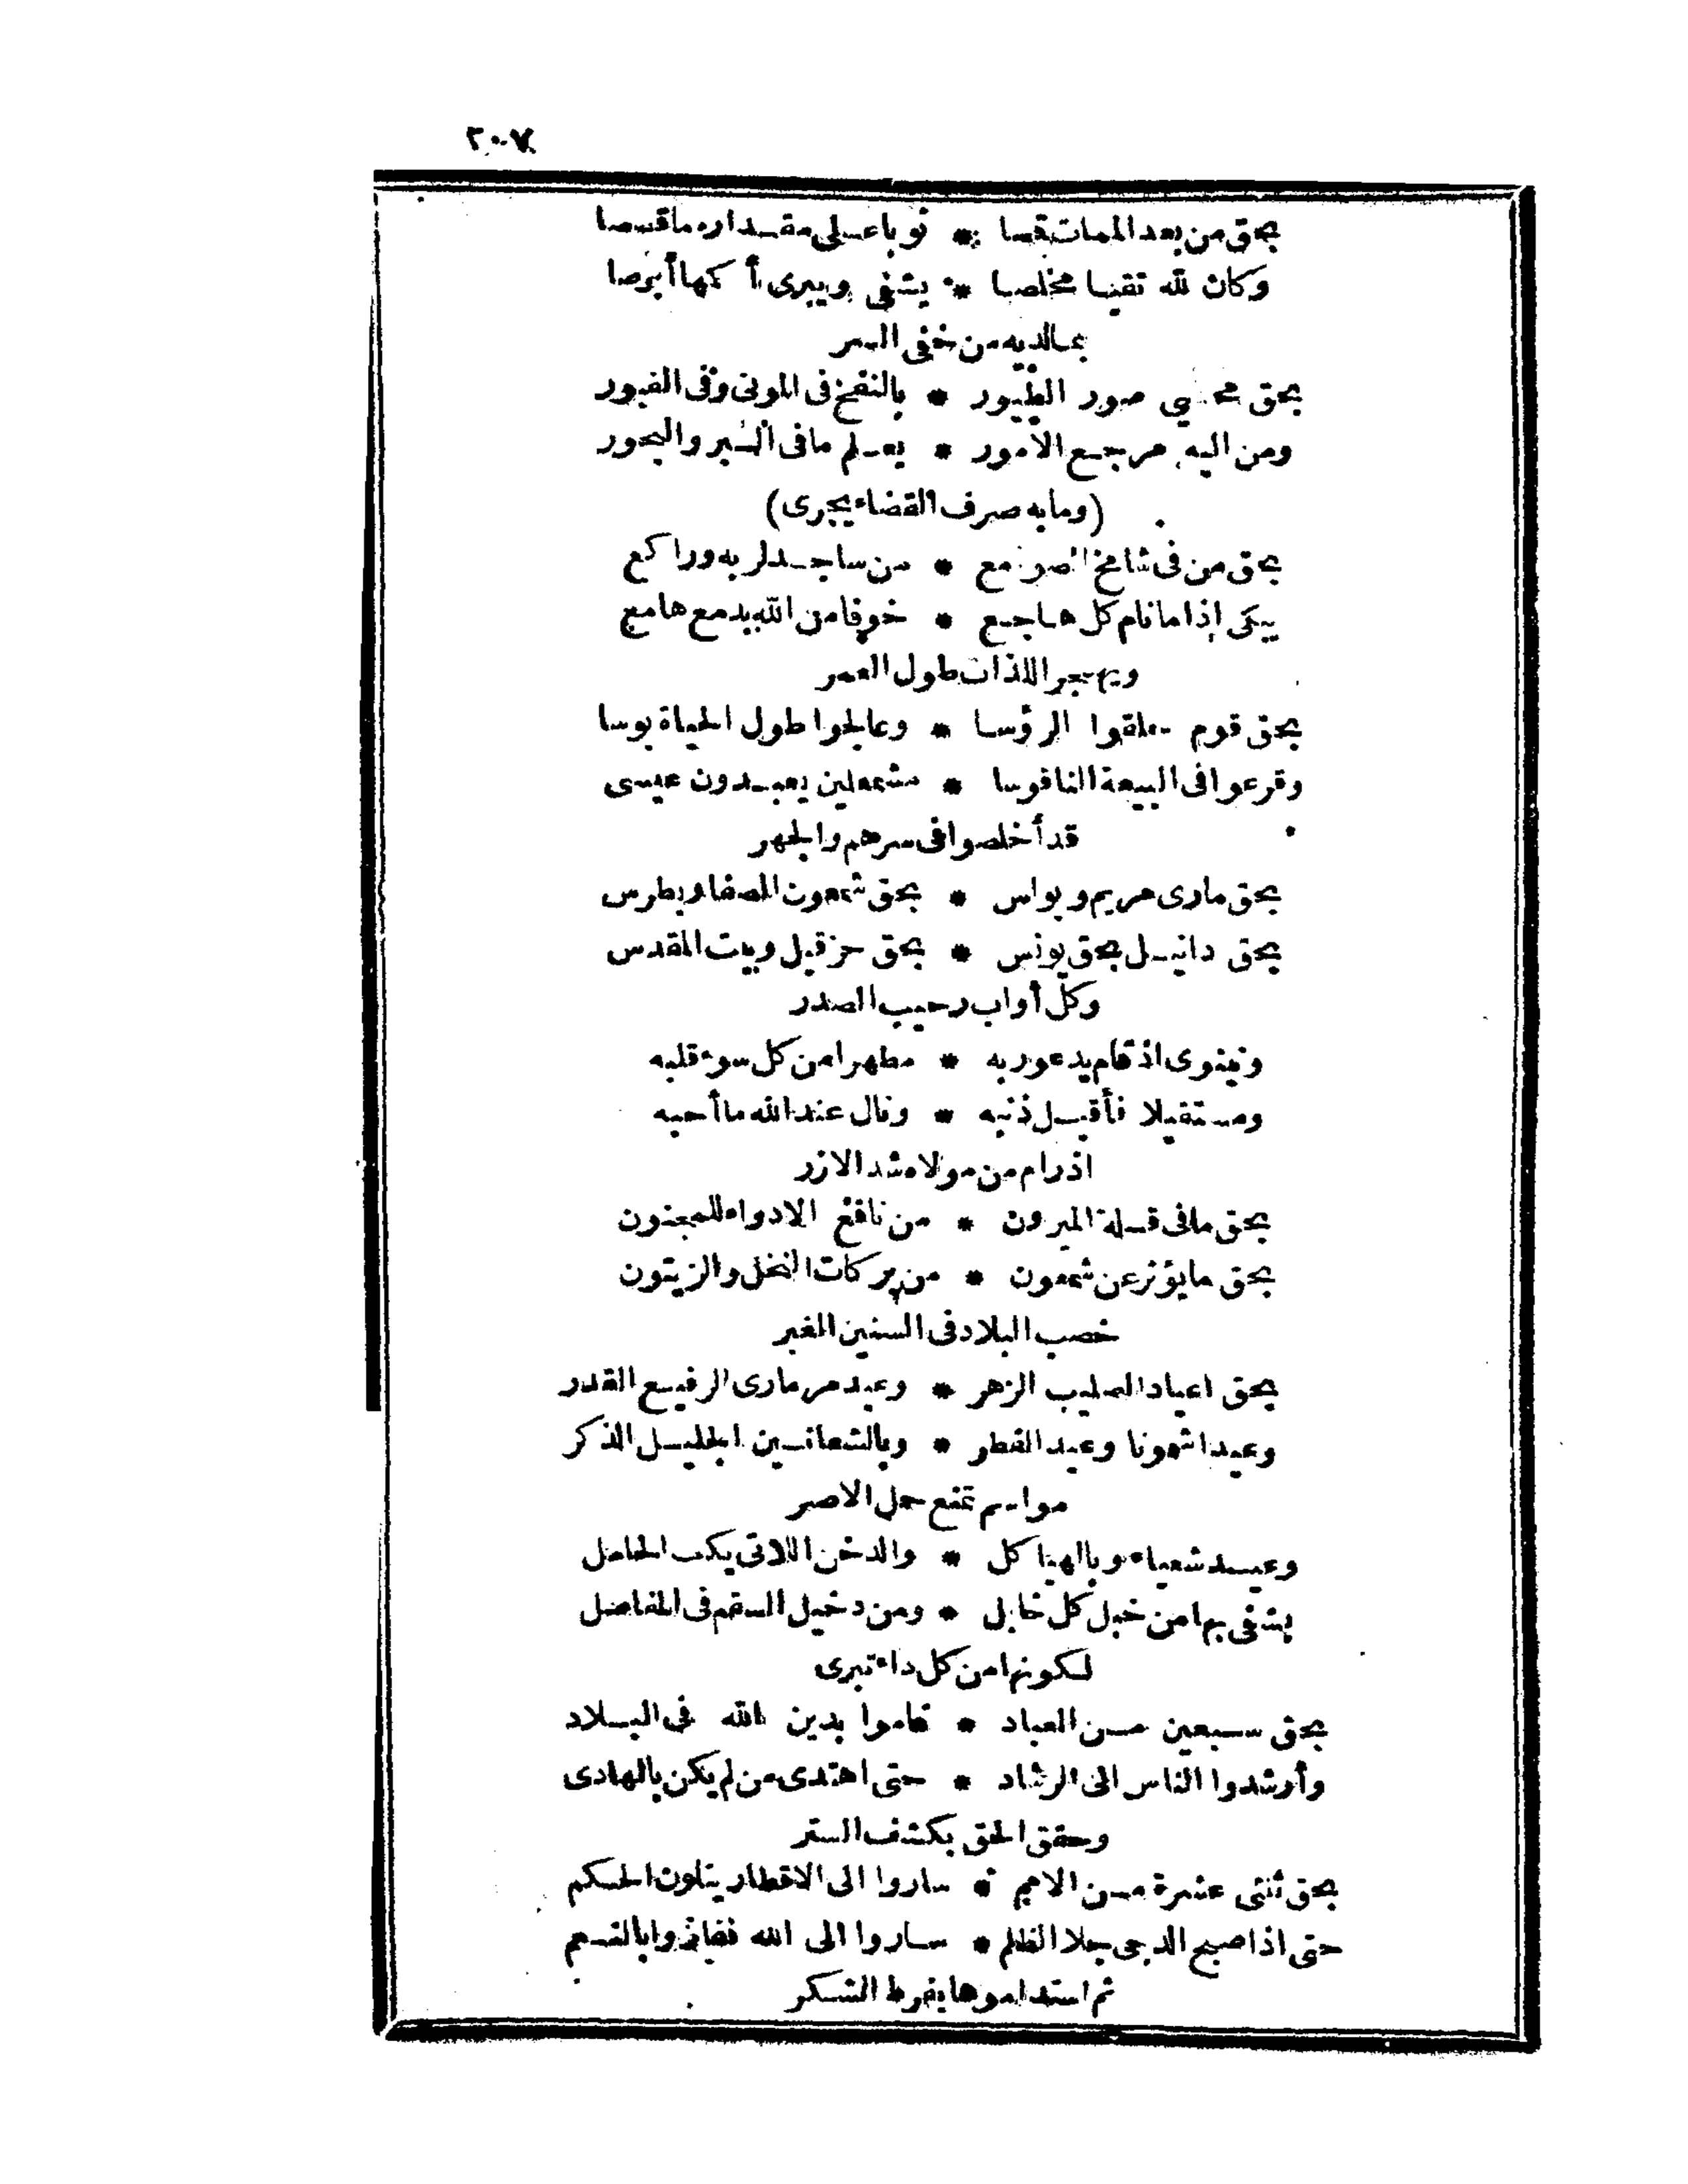 ٢٠٧
بحق من بعد الممات قمصا * ثوبا على مقداره ما قمصا
وكان لله تقيا مخلصا * يشفى ويبرى أكمها أبرصا
بما لديه من خفى السر
بحق محيى صور الطيور * بالنفخ فى الموتى وفى القبور
ومن اليه مرجع الأمور * يعلم ما فى البر والبحور
(وما به صرف القضاء يجرى)
بحق من فى شامخ الصوامع * من ساجد لربه وراكع
يبكى إذا ما نام كل هاجع * خوفا من الله بدمع هامع
ويهجر اللذات طول العمر
بحق قوم حلقوا الرؤسا * وعالجوا طول الحياة بوسا
وقرعوا فى البيعة الناقوسا * مشمعلين يعبدون عيسى
قد أخلصوا فى سرهم والجهر
بحق مارى مريم وبولس * بحق شمعون الصفا وبطرس
بحق دانيل بحق يونس * بحق حزقيل وبيت المقدس
وكل أواب رحيب الصدر
ونينوى اذ قام يدعو ربه * مطهرا من كل سوء قلبه
ومستقيلا فأقيل ذنبه * ونال عند الله ما أحبه
اذ رام من مولاه شد الازر
بحق ما فى قلة الميرون * من نافع الادواء للمجنون
بحق ما يؤثر عن شمعون * من بركات النخل والزيتون
خصب البلاد فى السنين الغبر
بحق اعياد الصليب الزهر * وعيد مرمارى الرفيع القدر
وعيد اشمونا وعيد الفطر * وبالشعانين الجليل الذكر
مواسم تمنع حمل الاصر
وعيد شعياء وبالهياكل * والدخن اللاتى بكف الحامل
يشفى بها من خبل كل خابل * ومن دخيل السقم فى المفاصل
لكونها من كل داء تبرى
بحق سبعين من العباد * قاموا بدين الله فى البلاد
وأرشدوا الناس الى الرشاد * حتى اهتدى من لم يكن بالهادى
وحقق الحق بكشف الستر
بحق ثنتى عشرة من الامم * ساروا الى الاقطار يتلون الحكم
حتى اذا صبح الدجى جلا الظلم * ساروا الى الله ففازوا بالنعم
ثم استداموها بفرط الشكر